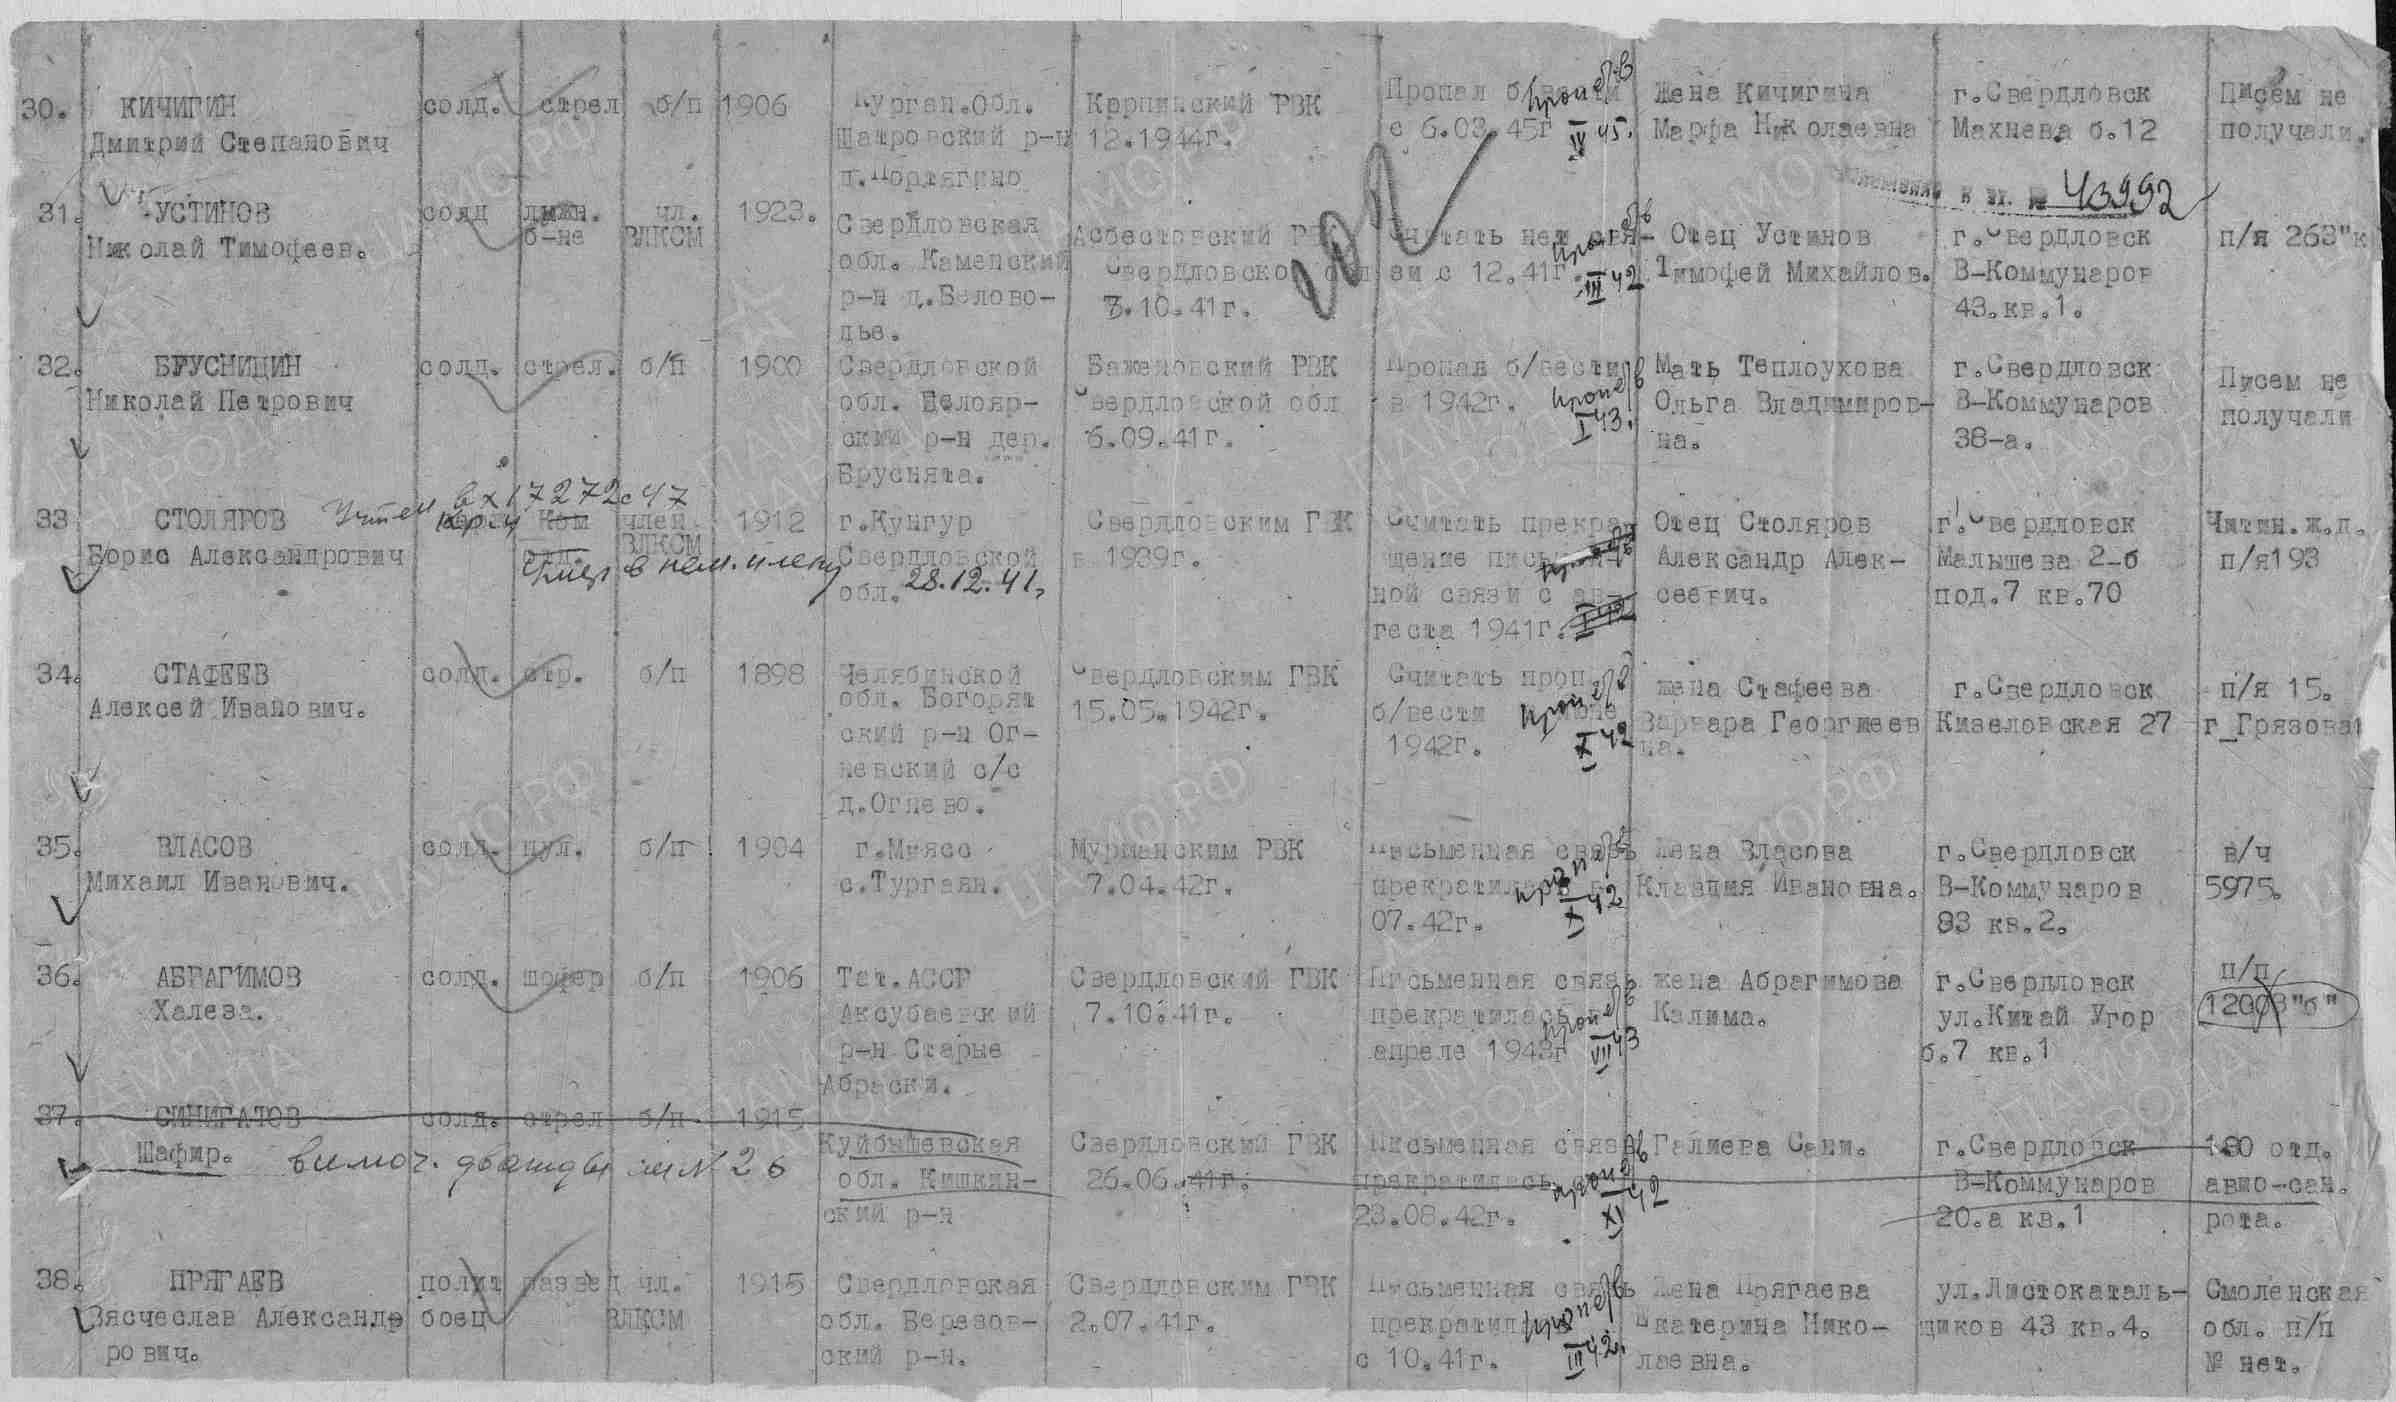 30. КИЧИГИН солд. стрел б/п 1906 Курган.Обл. Карпинский РВК Пропал б/вести Жена Кичигина г.Свердловск Писем не
Дмитрий Степанович Шатровский р-н 12.1944г. с 6.03.45г Марфа Николаевна Махнева б.12 получали.
проп б/в
IV 45.
к вх. № 43992
31. УСТИНОВ солд лыжн. чл. 1923. Свердловская Асбестовский РВК Считать нет свя- Отец Устинов г.Свердловск п/я 263"к
Николай Тимофеев. б-не ВЛКСМ обл. Каменский Свердловской обл зи с 12.41г. Тимофей Михайлов. В-Коммунаров
р-н д.Белово- 3.10.41г. 43.кв.1.
дье.
III 42
32. БРУСНИЦИН солд. стрел. б/п 1900 Свердловской Баженовский РВК Пропал б/вести Мать Теплоухова г.Свердловск Писем не
Николай Петрович обл. Белояр- Свердловской обл в 1942г. Ольга Владимиров- В-Коммунаров получали
ский р-н дер. 6.09.41г. на. 38-а.
Бруснята.
проп б/в
I 43.
Учтен вх 17272с 47
33 СТОЛЯРОВ ком член 1912 г.Кунгур Свердловским ГВК Считать прекра Отец Столяров г.Свердловск Читин.ж.д.
Борис Александрович отд. ВЛКСМ Свердловской в 1939г. щение письмен- Александр Алек- Малышева 2-б п/я193
обл. ной связи с ав- сеевич. под.7 кв.70
густа 1941г.
Умер в нем. плену 28.12.41г
34. СТАФЕЕВ солд. стр. б/п 1898 Челябинской Свердловским ГВК Считать проп. жена Стафеева г.Свердловск п/я 15.
Алексей Иванович. обл. Богорят 15.05.1942г. б/вести июне Варвара Георгиев Кизеловская 27 г_Грязовец
ский р-н Ог- 1942г. на.
невский с/с
д.Огнево.
проп. б/в
X 42
35. ВЛАСОВ солд. пул. б/п 1904 г.Миясс Мурманским РВК Письменная связь Жена Власова г.Свердловск в/ч
Михаил Иванович. с.Тургаян. 7.04.42г. прекратилась в Клавдия Ивановна. В-Коммунаров 5975.
07.42г. 83 кв.2.
проп б/в
X 42
36. АБРАГИМОВ солд. шофер б/п 1906 Тат.АССР Свердловский ГВК Письменная связь жена Абрагимова г.Свердловск п/п
Халева. Аксубаевский 7.10.41г. прекратилась в Калима. ул.Китай Угор 12008"б"
р-н Старые апреле 1943г б.7 кв.1
Абраски.
проп б/в
VII 43
37. СИНИГАТОВ солд. стрел б/п 1915 Куйбышевская Свердловский ГВК Письменная связь Галиева Сани. г.Свердловск 180 отд.
Шафир. обл. Кишкин- 26.06.41г. прекратилась В-Коммунаров авио-сан.
ский р-н 23.08.42г. 20.а кв.1 рота.
включ. дважды см № 26
проп б/в
XI 42
38. ПРЯГАЕВ полит развед чл. 1915 Свердловская Свердловским ГВК Письменная связь Жена Прягаева ул.Листокаталь- Смоленская
Вясчеслав Александр боец ВЛКСМ обл. Березов- 2.07.41г. прекратилась Екатерина Нико- щиков 43 кв.4. обл. п/п
рович. ский р-н. с 10.41г. лаевна. № нет.
проп б/в
III 42.